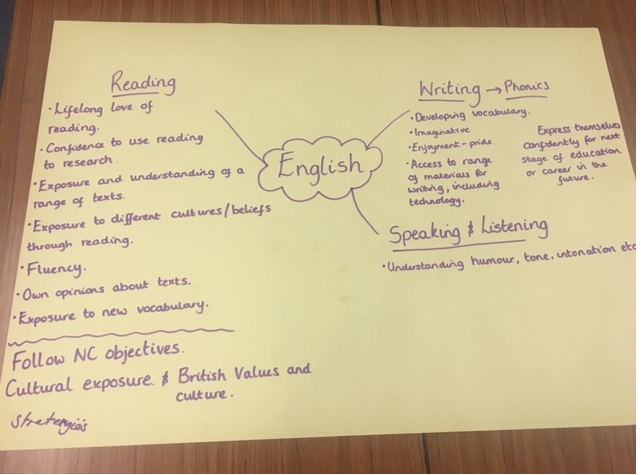 Reading
• Lifelong love of
reading.
• Confidence to use reading
to research
• Exposure and understanding of a
range of texts.
• Exposure to different cultures/beliefs
through reading.
• Fluency.
• Own opinions about texts.
• Exposure to new vocabulary.
Follow NC objectives.
Cultural exposure. & British Values and
culture.
English
Writing → Phonics
• Developing vocabulary.
• Imaginative
• Enjoyment - pride
• Access to range
of materials for
writing, including
technology.
Express themselves
confidently for next
stage of education
or career in the
future.
Speaking & Listening
• Understanding humour, tone, intonation etc